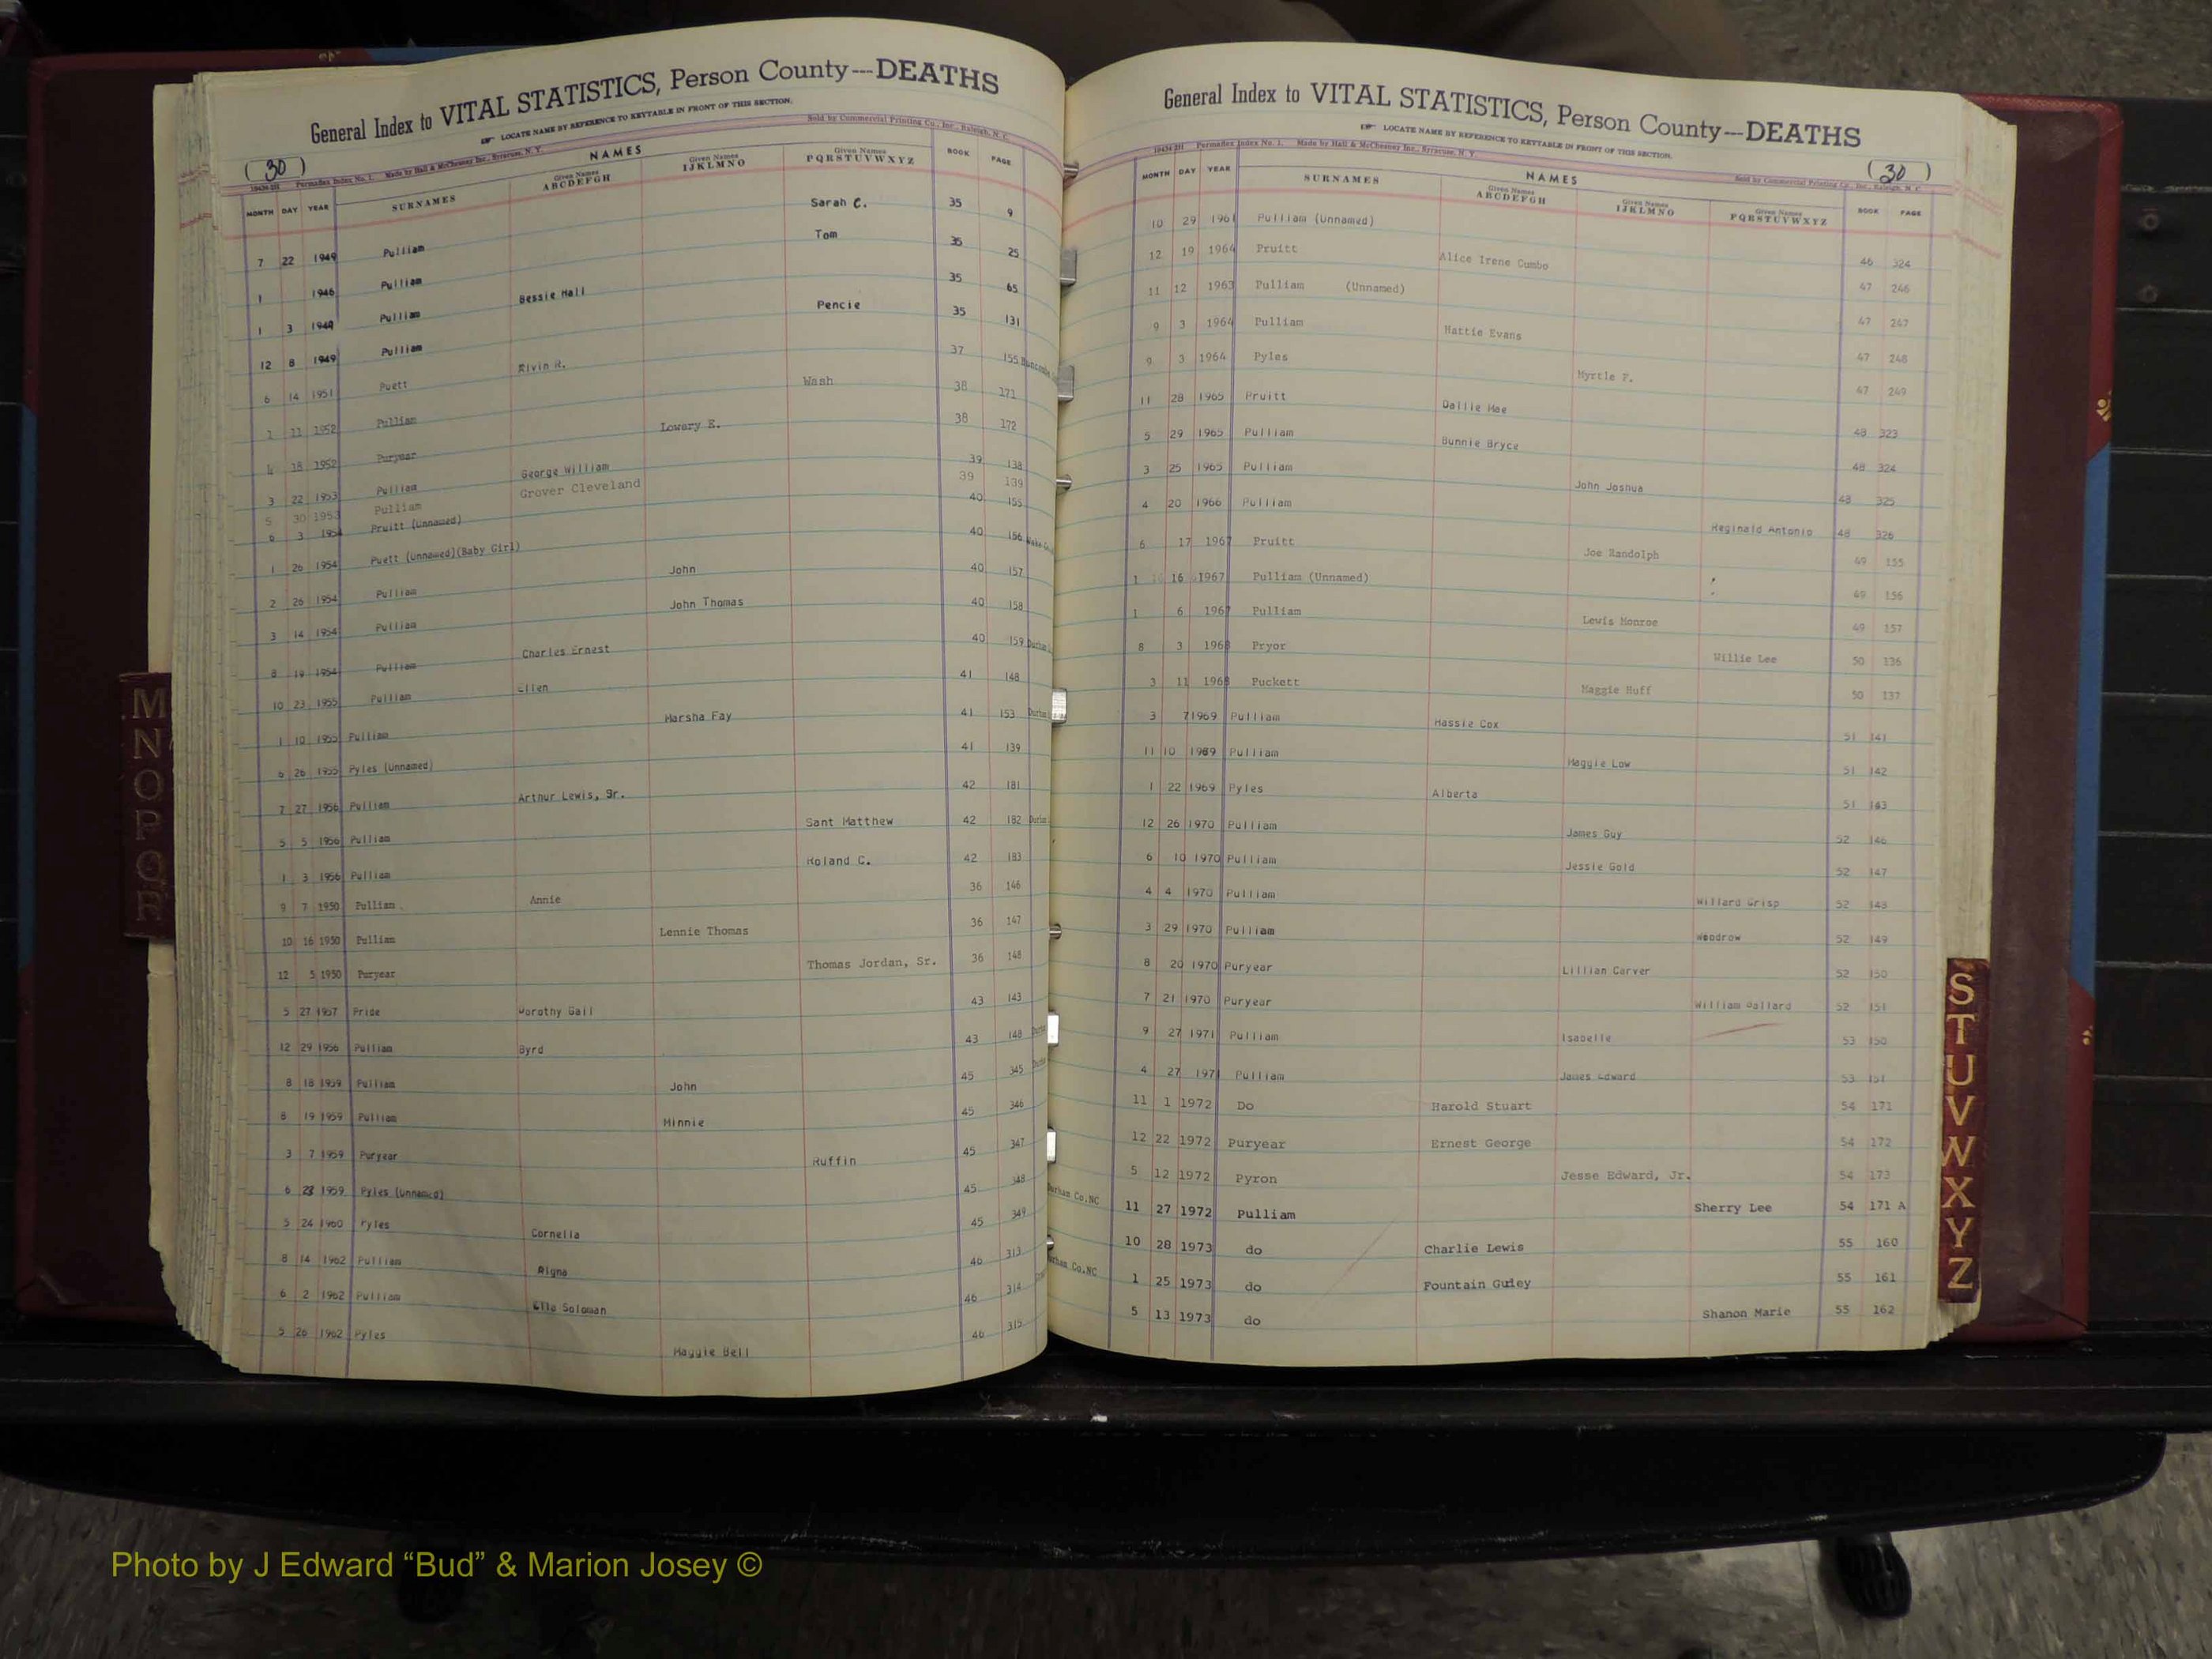 General Index to VITAL STATISTICS, Person County---DEATHS
LOCATE NAME BY REFERENCE TO KEYTABLE IN FRONT OF THIS SECTION.
(30) Permadex Index No. 1. Made by Hall & McChesney Inc., Syracuse, N. Y. Sold by Commercial Printing Co., Inc., Raleigh, N. C.
NAMES
MONTH DAY YEAR SURNAMES Given Names ABCDEFGH Given Names IJKLMNO Given Names PQRSTUVWXYZ BOOK PAGE
7 22 1949 Pulliam Sarah C. 35 9
1 1946 Pulliam Tom 35 25
1 3 1949 Pulliam Bessie Hall 35 65
12 8 1949 Pulliam Pencie 35 131
6 14 1951 Puett Alvin R. 37 155
1 11 1952 Pulliam Wash 38 171
4 18 1952 Puryear Lowery E. 38 172
3 22 1953 Pulliam George William 39 138
5 30 1953 Pulliam Grover Cleveland 39 139
6 3 1954 Pruitt (Unnamed) 40 155
1 26 1954 Puett (Unnamed)(Baby Girl) 40 156
2 26 1954 Pulliam John 40 157
3 14 1954 Pulliam John Thomas 40 158
8 19 1954 Pulliam Charles Ernest 40 159 Durham
10 23 1955 Pulliam Ellen 41 148
1 10 1955 Pulliam Marsha Fay 41 153 Durham
6 26 1955 Pyles (Unnamed) 41 139
7 27 1956 Pulliam Arthur Lewis, Sr. 42 181
5 5 1956 Pulliam Sant Matthew 42 182 Durham
1 3 1956 Pulliam Roland C. 42 183
9 7 1950 Pulliam Annie 36 146
10 16 1950 Pulliam Lennie Thomas 36 147
12 5 1950 Puryear Thomas Jordan, Sr. 36 148
5 27 1957 Pride Dorothy Gail 43 143
12 29 1956 Pulliam Byrd 43 148
8 18 1959 Pulliam John 45 345
8 19 1959 Pulliam Minnie 45 346
3 7 1959 Puryear Ruffin 45 347
6 23 1959 Pyles (Unnamed) 45 348
5 24 1960 Pyles Cornelia 45 349
8 14 1962 Pulliam Algna 46 313
6 2 1962 Pulliam Ella Soloman 46 314
5 26 1962 Pyles Maggie Bell 46 315
General Index to VITAL STATISTICS, Person County---DEATHS
LOCATE NAME BY REFERENCE TO KEYTABLE IN FRONT OF THIS SECTION.
Permadex Index No. 1. Made by Hall & McChesney Inc., Syracuse, N. Y. Sold by Commercial Printing Co., Inc., Raleigh, N. C. (30)
NAMES
MONTH DAY YEAR SURNAMES Given Names ABCDEFGH Given Names IJKLMNO Given Names PQRSTUVWXYZ BOOK PAGE
10 29 1961 Pulliam (Unnamed) 46 324
12 19 1964 Pruitt Alice Irene Cumbo 47 246
11 12 1963 Pulliam (Unnamed) 47 247
9 3 1964 Pulliam Hattie Evans 47 248
9 3 1964 Pyles Myrtle F. 47 249
11 28 1965 Pruitt Dallie Mae 48 323
5 29 1965 Pulliam Bunnie Bryce 48 324
3 25 1965 Pulliam John Joshua 48 325
4 20 1966 Pulliam Reginald Antonio 48 326
6 17 1967 Pruitt Joe Randolph 49 155
1 16 1967 Pulliam (Unnamed) 49 156
1 6 1967 Pulliam Lewis Monroe 49 157
8 3 1968 Pryor Willie Lee 50 136
3 11 1968 Puckett Maggie Huff 50 137
3 7 1969 Pulliam Hassie Cox 51 141
11 10 1969 Pulliam Maggie Low 51 142
1 22 1969 Pyles Alberta 51 143
12 26 1970 Pulliam James Guy 52 146
6 10 1970 Pulliam Jessie Gold 52 147
4 4 1970 Pulliam Willard Crisp 52 148
3 29 1970 Pulliam Woodrow 52 149
8 20 1970 Puryear Lillian Carver 52 150
7 21 1970 Puryear William Ballard 52 151
9 27 1971 Pulliam Isabelle 53 150
4 27 1971 Pulliam James Edward 53 151
11 1 1972 Do Harold Stuart 54 171
12 22 1972 Puryear Ernest George 54 172
5 12 1972 Pyron Jesse Edward, Jr. 54 173
Durham Co.NC 11 27 1972 Pulliam Sherry Lee 54 171 A
10 28 1973 do Charlie Lewis 55 160
Durham Co.NC 1 25 1973 do Fountain Guley 55 161
5 13 1973 do Shanon Marie 55 162
M
N
O
P
Q
R
S
T
U
V
W
X
Y
Z
Photo by J Edward “Bud” & Marion Josey ©